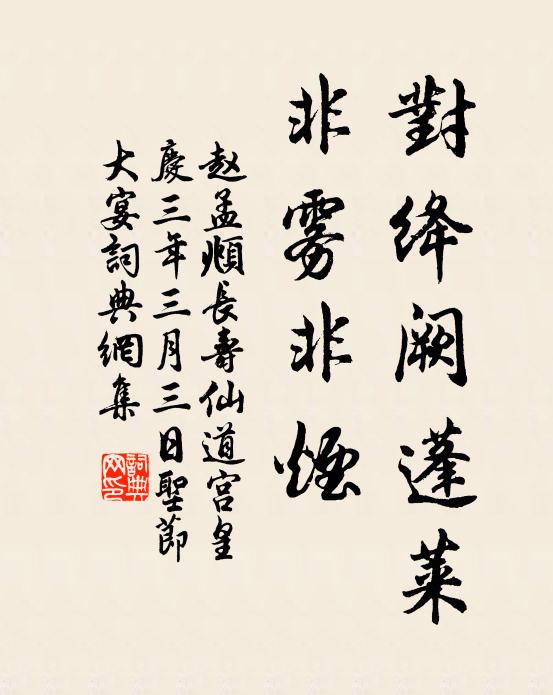 對绛阙蓬萊
非雾非煙
赵孟頫長壽仙道宫皇
慶三年三月三日聖節
大宴詞典網集
詞典
网印